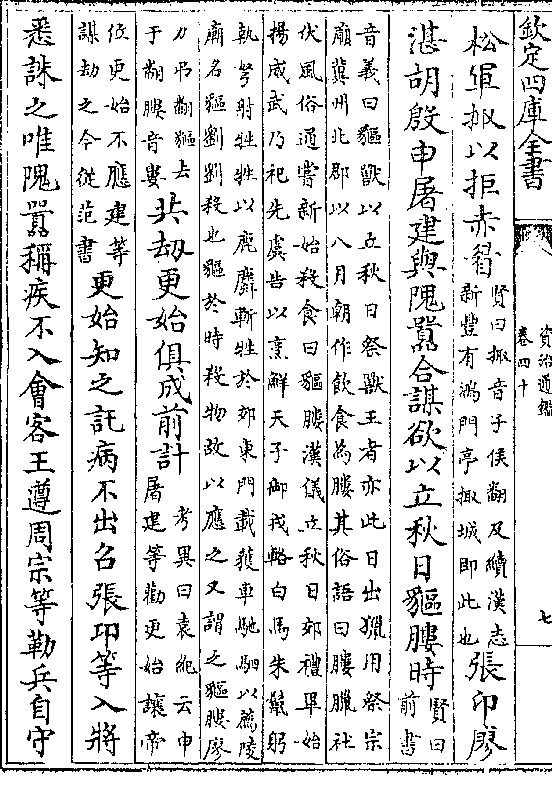 欽定四庫全書
資治通鑑
卷四十
七
松軍掫以拒赤眉
賢曰掫音子侯翻及續漢志
新豐有鴻門亭掫城即此也
張印廖
湛胡殷申屠建與隗囂合謀欲以立秋日貙膢時
賢曰
前書
音義曰貙獸以立秋日祭獸王者亦此日出獵用祭宗
廟冀州北郡以八月朝作飲食為膢其俗語曰膢臘社
伏風俗通嘗新始殺食曰貙膢漢儀立秋日郊禮畢始
揚威武乃祀先虞告以烹鮮天子御戎輅白馬朱鬛躬
執弩射牲牲以鹿麛斬牲於郊東門載獲車馳駟以薦陵
廟名貙劉劉殺也貙於時殺物故以應之又謂之貙膢廖
力弔翻貙去
于翻膢音婁
共劫更始俱成前計
考異曰袁紀云申
屠建等勸更始讓帝
位更始不應建等
謀劫之今從范書
更始知之託病不出召張印等入將
悉誅之唯隗囂稱疾不入會客王遵周宗等勒兵自守